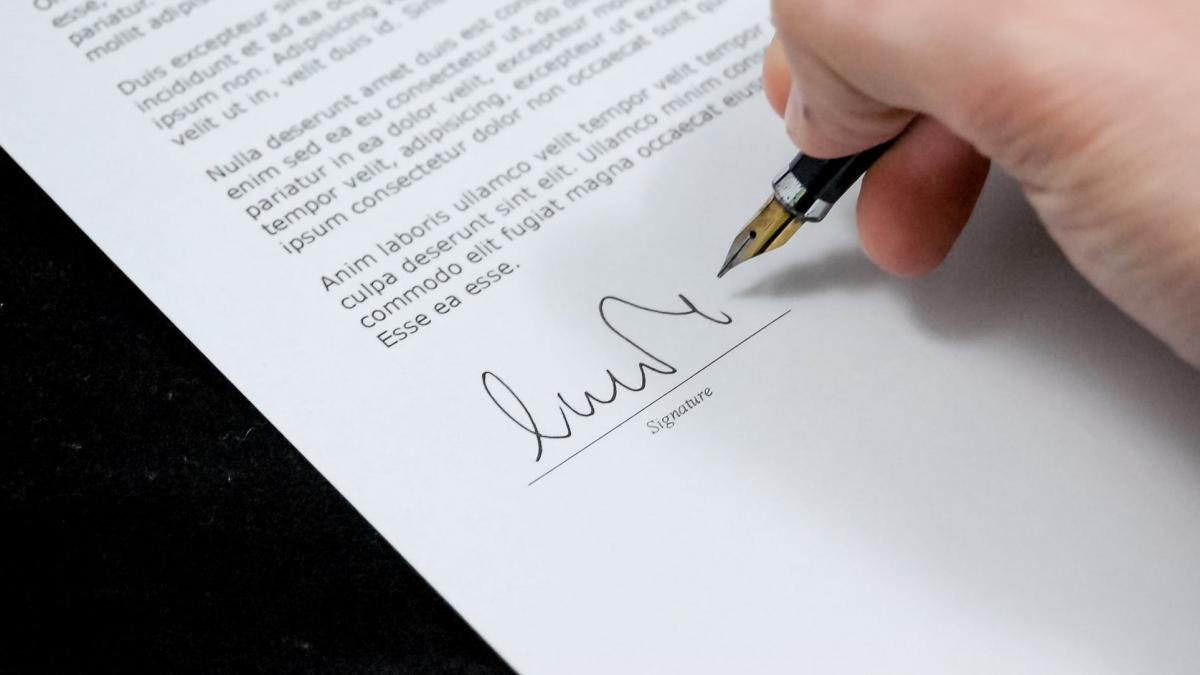 esse,
pariatur.
mollit adipisi
Duis excepteur sin
incididunt et ad ea oc
ipsum non. Adipisicing
velit ut in, velit duis id. Sint
Nulla deserunt amet duis est cons
enim sed ea eu consectetur ut, do de
pariatur in ea dolor velit, excepteur mol
tempor velit, adipisicing, excepteur ut exce
ipsum consectetur dolor non occaecat sunt qui
Anim laboris ullamco velit tempor velit tempor
culpa deserunt sint elit. Ullamco minim cons
commodo elit fugiat magna occaecat eius
Esse ea esse.
Signature